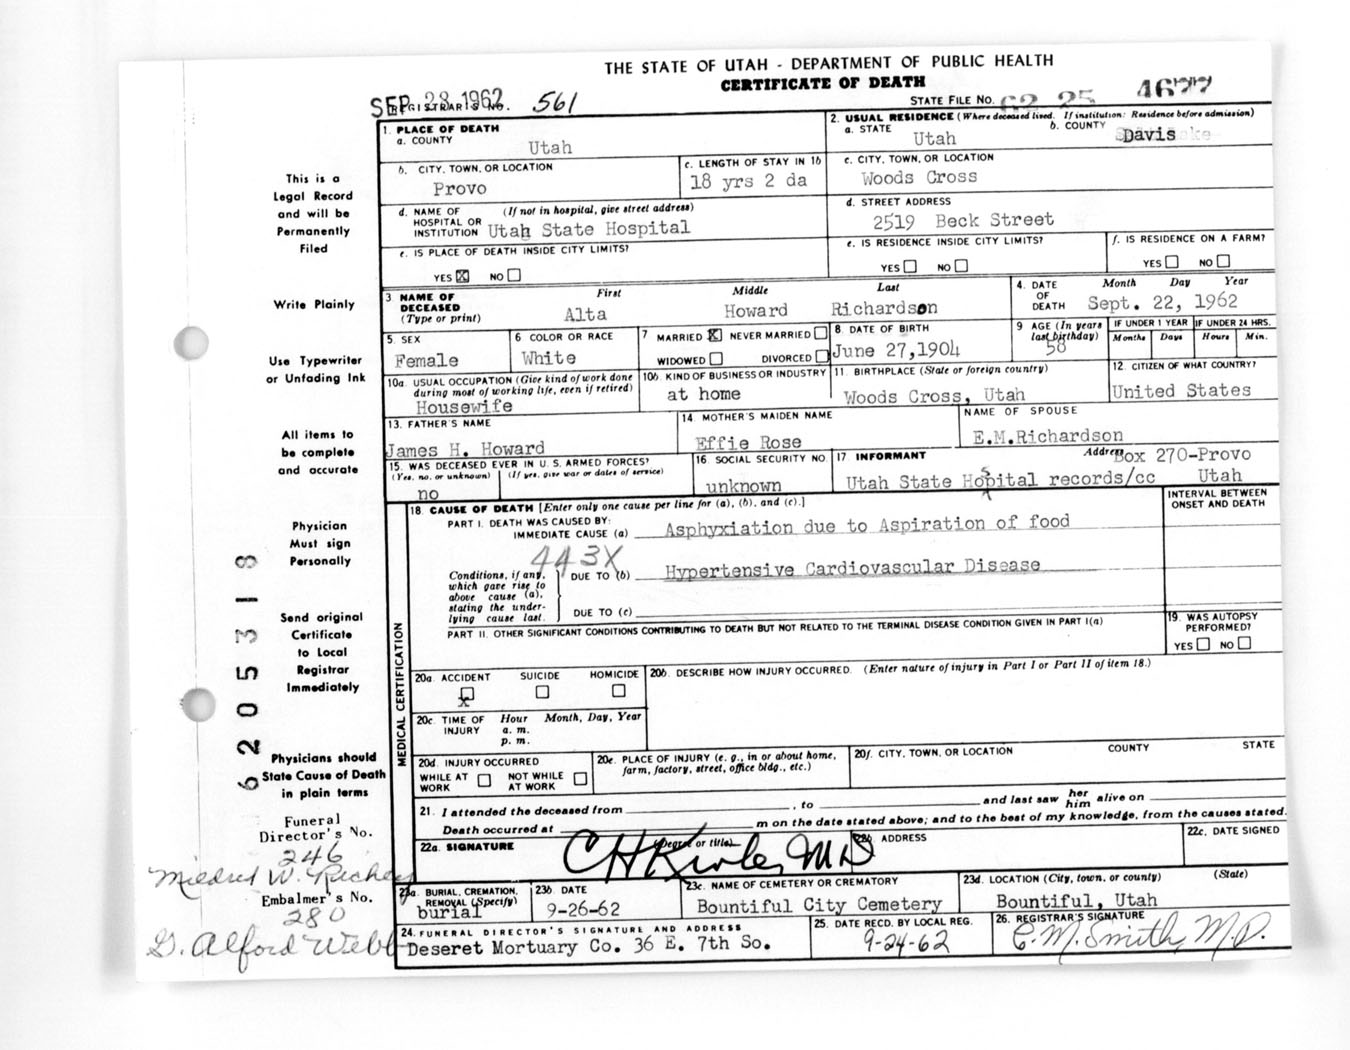 THE STATE OF UTAH - DEPARTMENT OF PUBLIC HEALTH
CERTIFICATE OF DEATH
SEP 28 1962
REGISTRAR'S NO. 561
STATE FILE NO. 62 25 4677
1. PLACE OF DEATH
a. COUNTY
Utah
2. USUAL RESIDENCE (Where deceased lived. If institution: Residence before admission)
a. STATE Utah
b. COUNTY Davis
b. CITY, TOWN, OR LOCATION
Provo
c. LENGTH OF STAY IN 1b
18 yrs 2 da
c. CITY, TOWN, OR LOCATION
Woods Cross
d. NAME OF (If not in hospital, give street address)
HOSPITAL OR
INSTITUTION Utah State Hospital
d. STREET ADDRESS
2519 Beck Street
e. IS PLACE OF DEATH INSIDE CITY LIMITS?
YES X NO
e. IS RESIDENCE INSIDE CITY LIMITS?
YES NO
f. IS RESIDENCE ON A FARM?
YES NO
3 NAME OF
DECEASED
(Type or print)
First Middle Last
Alta Howard Richardson
4. DATE
OF
DEATH
Month Day Year
Sept. 22, 1962
5. SEX
Female
6 COLOR OR RACE
White
7 MARRIED X NEVER MARRIED
WIDOWED DIVORCED
8. DATE OF BIRTH
June 27,1904
9 AGE (In years
last birthday)
58
IF UNDER 1 YEAR
Months Days
IF UNDER 24 HRS.
Hours Min.
10a. USUAL OCCUPATION (Give kind of work done
during most of working life, even if retired)
Housewife
10b. KIND OF BUSINESS OR INDUSTRY
at home
11. BIRTHPLACE (State or foreign country)
Woods Cross, Utah
12. CITIZEN OF WHAT COUNTRY?
United States
13. FATHER'S NAME
James H. Howard
14. MOTHER'S MAIDEN NAME
Effie Rose
NAME OF SPOUSE
E.M.Richardson
15. WAS DECEASED EVER IN U.S. ARMED FORCES?
(Yes, no, or unknown) (If yes, give war or dates of service)
no
16. SOCIAL SECURITY NO.
unknown
17. INFORMANT Address
Box 270-Provo
Utah State Hospital records/cc Utah
MEDICAL CERTIFICATION
18. CAUSE OF DEATH [Enter only one cause per line for (a), (b), and (c).]
INTERVAL BETWEEN
ONSET AND DEATH
PART I. DEATH WAS CAUSED BY:
IMMEDIATE CAUSE (a) Asphyxiation due to Aspiration of food
443X
Conditions, if any,
which gave rise to
above cause (a),
stating the under-
lying cause last.
DUE TO (b) Hypertensive Cardiovascular Disease
DUE TO (c)
PART II. OTHER SIGNIFICANT CONDITIONS CONTRIBUTING TO DEATH BUT NOT RELATED TO THE TERMINAL DISEASE CONDITION GIVEN IN PART I(a)
19. WAS AUTOPSY
PERFORMED?
YES NO
20a. ACCIDENT SUICIDE HOMICIDE
X
20b. DESCRIBE HOW INJURY OCCURRED. (Enter nature of injury in Part I or Part II of item 18.)
20c. TIME OF
INJURY
Hour Month, Day, Year
a. m.
p. m.
20d. INJURY OCCURRED
WHILE AT
WORK
NOT WHILE
AT WORK
20e. PLACE OF INJURY (e. g., in or about home,
farm, factory, street, office bldg., etc.)
20f. CITY, TOWN, OR LOCATION COUNTY STATE
21. I attended the deceased from , to and last saw her him alive on
Death occurred at m on the date stated above; and to the best of my knowledge, from the causes stated.
22a. SIGNATURE (Degree or title)
MD
22b. ADDRESS
22c. DATE SIGNED
23a. BURIAL, CREMATION,
REMOVAL (Specify)
burial
23b. DATE
9-26-62
23c. NAME OF CEMETERY OR CREMATORY
Bountiful City Cemetery
23d. LOCATION (City, town, or county) (State)
Bountiful, Utah
24. FUNERAL DIRECTOR'S SIGNATURE AND ADDRESS
Deseret Mortuary Co. 36 E. 7th So.
25. DATE RECD. BY LOCAL REG.
9-24-62
26. REGISTRAR'S SIGNATURE
E.M. Smith, M.D.
This is a
Legal Record
and will be
Permanently
Filed
Write Plainly
Use Typewriter
or Unfading Ink
All items to
be complete
and accurate
Physician
Must sign
Personally
Send original
Certificate
to Local
Registrar
Immediately
Physicians should
State Cause of Death
in plain terms
Funeral
Director's No.
246
Mildred W. Richey
Embalmer's No.
280
G. Alford Webb